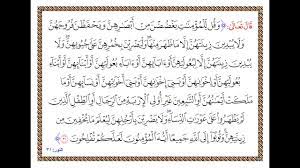 قَالَ تَعَالَى: ﴿ وَقُل لِّلْمُؤْمِنَٰتِ يَغْضُضْنَ مِنْ أَبْصَٰرِهِنَّ وَيَحْفَظْنَ فُرُوجَهُنَّ
وَلَا يُبْدِينَ زِينَتَهُنَّ إِلَّا مَا ظَهَرَ مِنْهَا وَلْيَضْرِبْنَ بِخُمُرِهِنَّ عَلَىٰ جُيُوبِهِنَّ وَلَا
يُبْدِينَ زِينَتَهُنَّ إِلَّا لِبُعُولَتِهِنَّ أَوْ ءَابَآئِهِنَّ أَوْ ءَابَآءِ بُعُولَتِهِنَّ أَوْ أَبْنَآئِهِنَّ أَوْ أَبْنَآءِ
بُعُولَتِهِنَّ أَوْ إِخْوَٰنِهِنَّ أَوْ بَنِىٓ إِخْوَٰنِهِنَّ أَوْ بَنِىٓ أَخَوَٰتِهِنَّ أَوْ نِسَآئِهِنَّ أَوْ مَا
مَلَكَتْ أَيْمَٰنُهُنَّ أَوِ ٱلتَّٰبِعِينَ غَيْرِ أُو۟لِى ٱلْإِرْبَةِ مِنَ ٱلرِّجَالِ أَوِ ٱلطِّفْلِ ٱلَّذِينَ
لَمْ يَظْهَرُوا۟ عَلَىٰ عَوْرَٰتِ ٱلنِّسَآءِ وَلَا يَضْرِبْنَ بِأَرْجُلِهِنَّ لِيُعْلَمَ مَا يُخْفِينَ مِن
زِينَتِهِنَّ وَتُوبُوٓا۟ إِلَى ٱللَّهِ جَمِيعًا أَيُّهَ ٱلْمُؤْمِنُونَ لَعَلَّكُمْ تُفْلِحُونَ ﴾
النور: ٣١